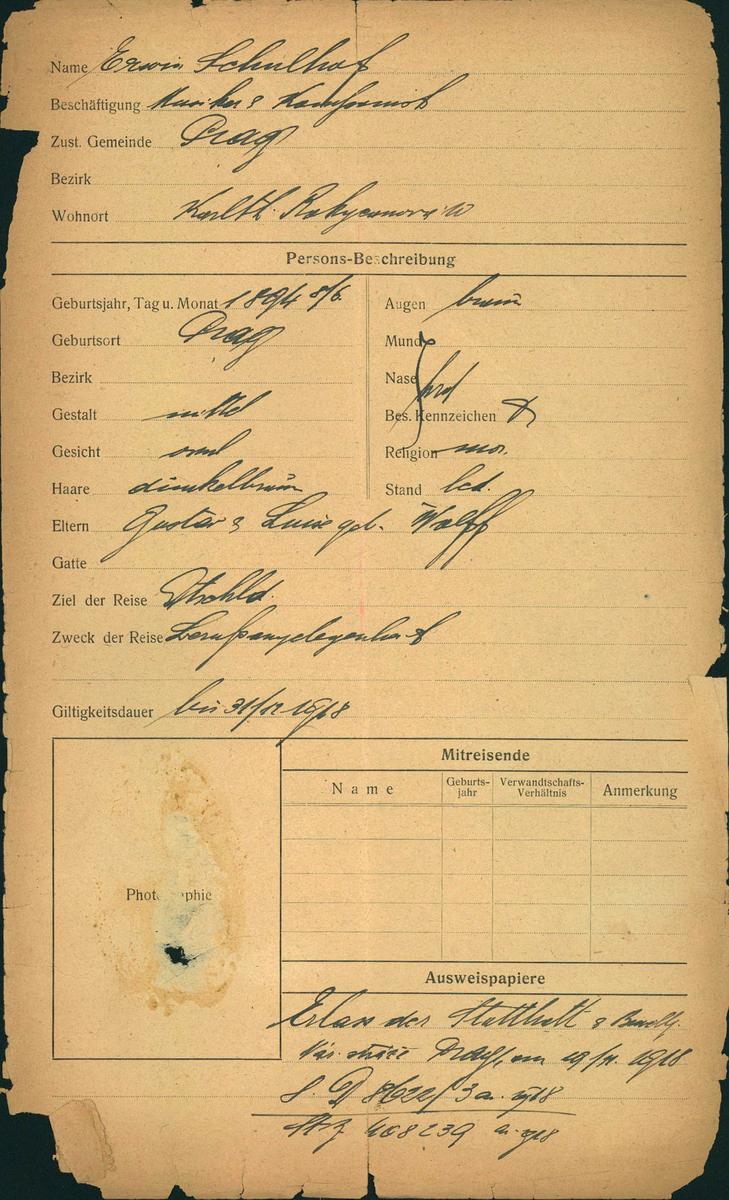 Name Erwin Schulhof
Beschäftigung Musiker & Komponist
Zust. Gemeinde Prag
Bezirk
Wohnort Karlth. Rokycanova 10
Persons-Beschreibung
Geburtsjahr, Tag u. Monat 1894 8/6.
Geburtsort Prag
Bezirk
Gestalt mittel
Gesicht oval
Haare dunkelbraun
Augen braun
Mund
Nase prop
Bes. Kennzeichen
Religion mos.
Stand led.
Eltern Gustav & Luise geb. Wolff
Gatte
Ziel der Reise Dtschld.
Zweck der Reise Berufsangelegenheit
Giltigkeitsdauer bis 31/12 1918
Photographie
Mitreisende
Name
Geburts-
jahr
Verwandtschafts-
Verhältnis
Anmerkung
Ausweispapiere
Erlass der Statthltt &
Nár. Prag, vom 1918
8622/3 a. 1918
468239 a. 1918